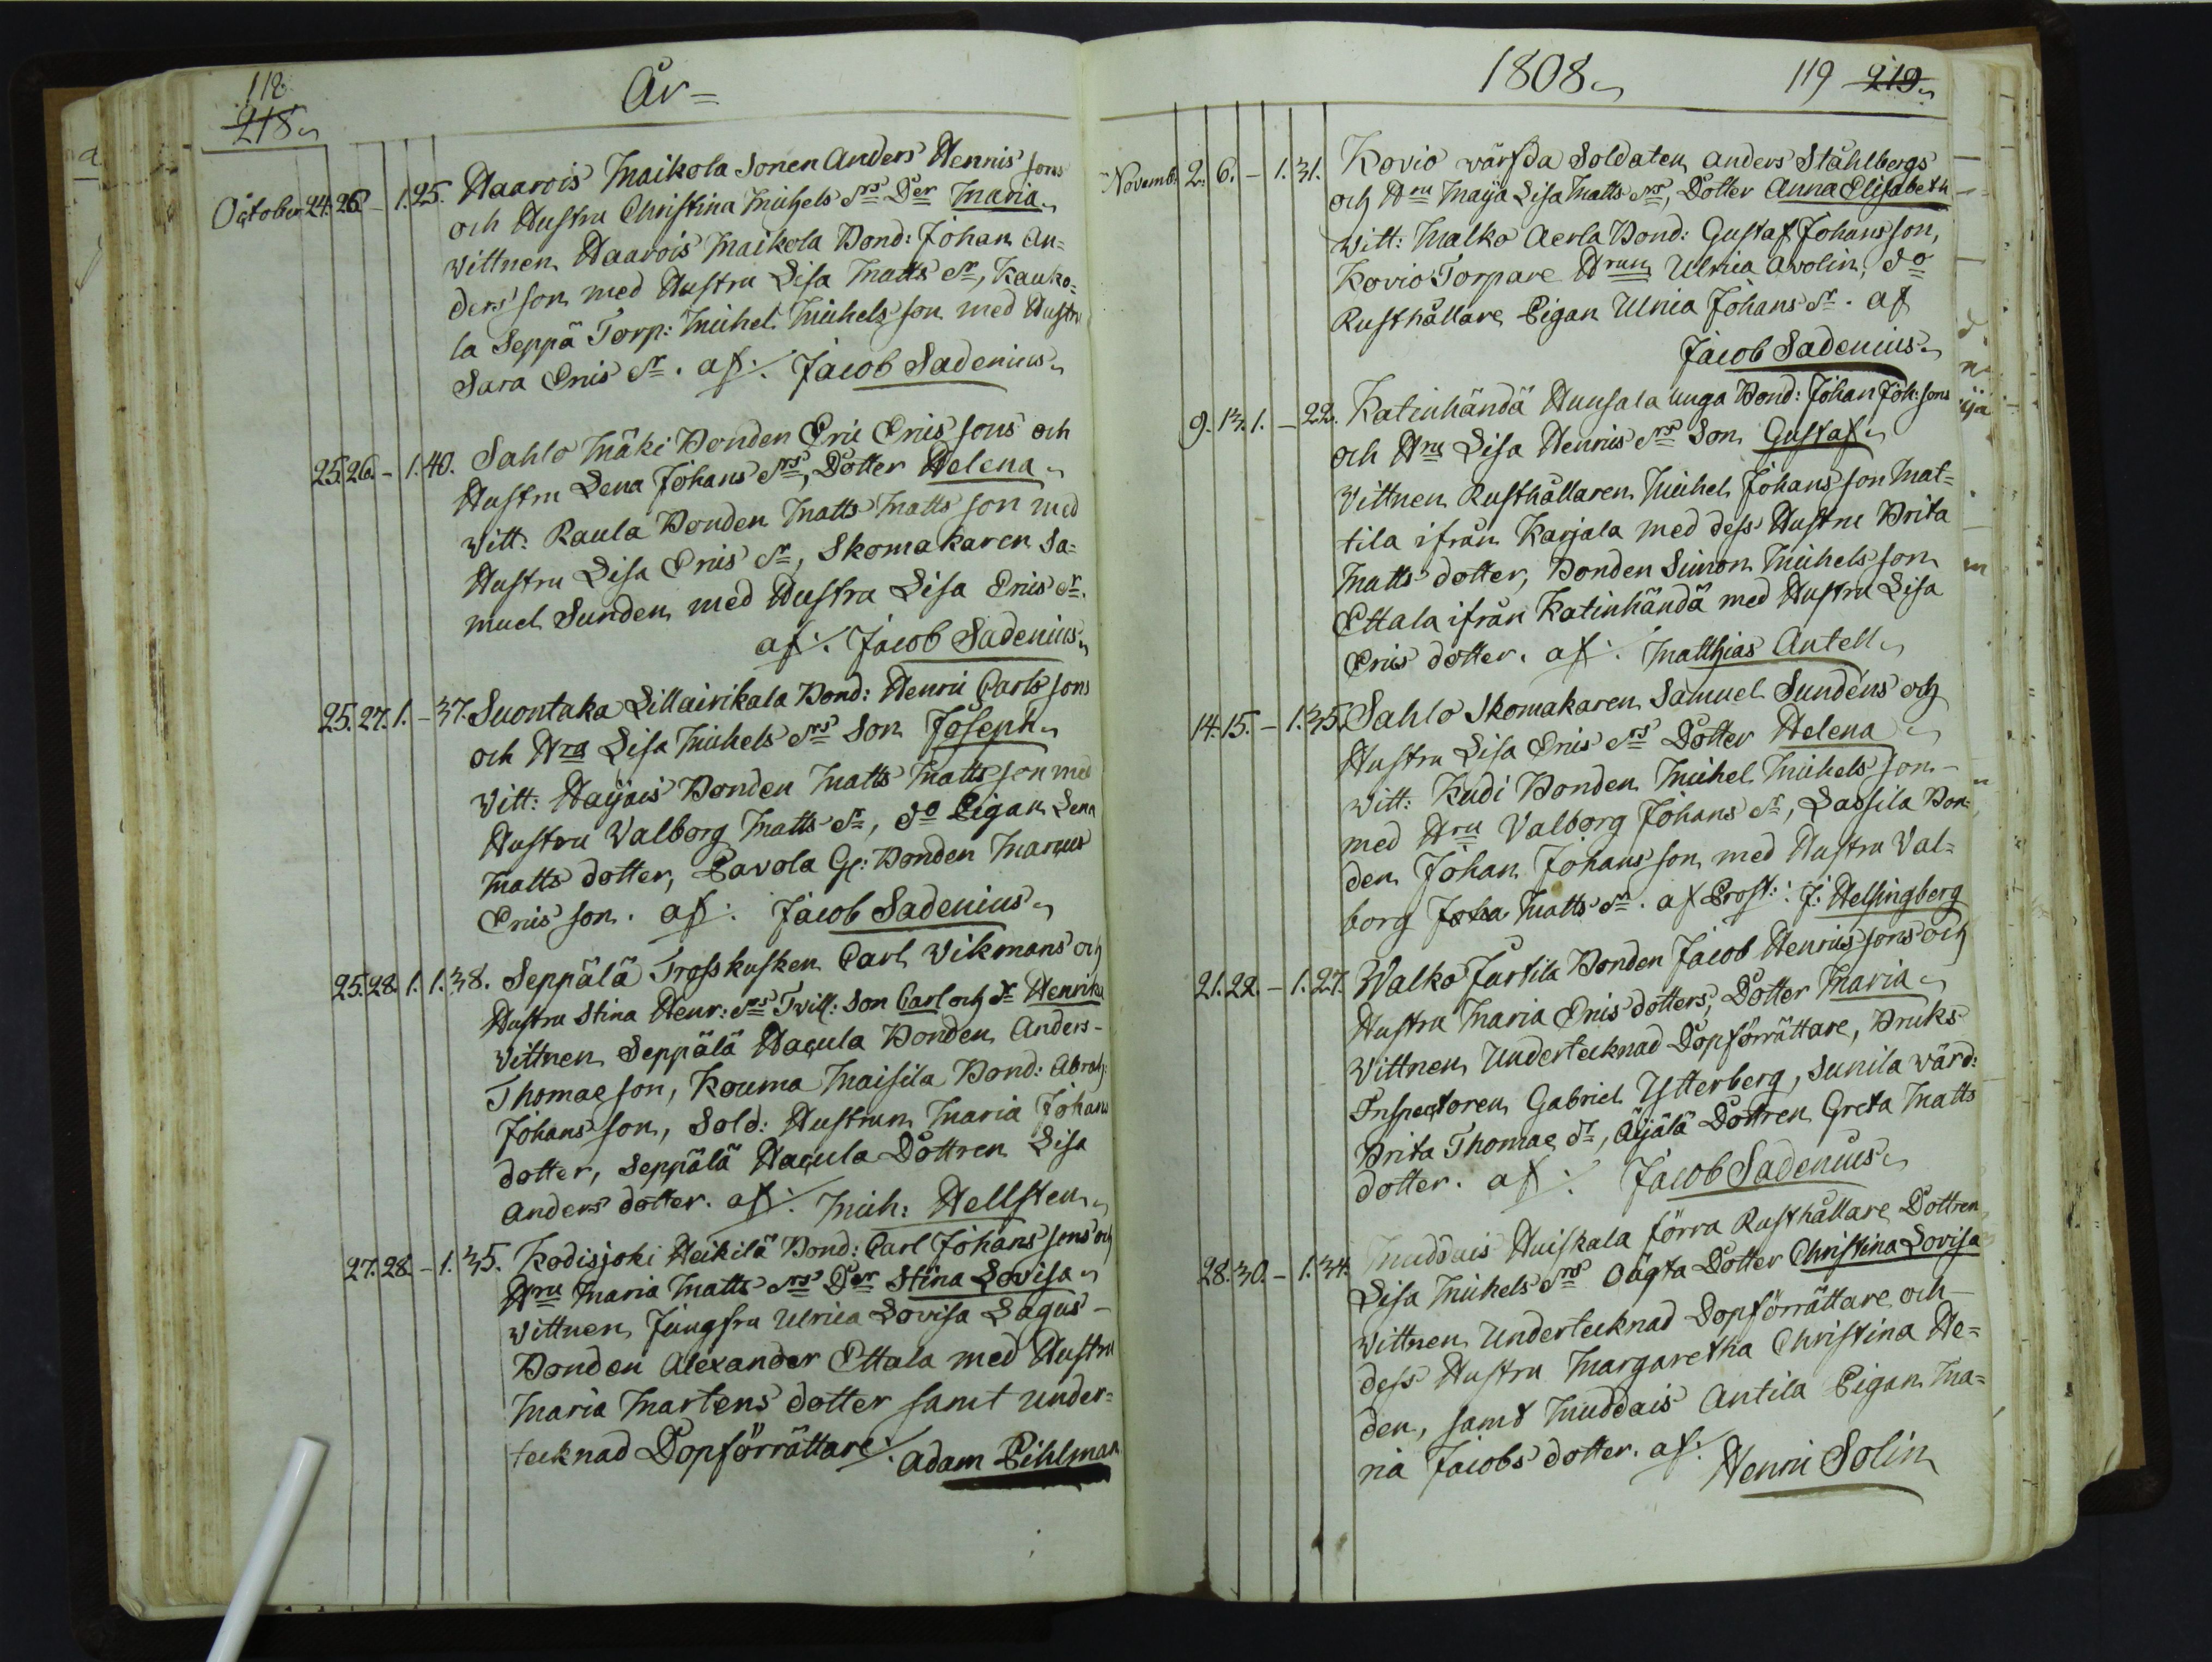 118
218
År =
October 24. 26. - 1. 25. Haarois Maikola Sonen Anders Henrics sons
och Hustru Christina Michels Drs Der Maria
Vittnen Haarois Maikola Bond: Johan An=
ders son med Hustru Lisa Matts Dr, Kauko=
la Seppä Torp: Michel Michels son med Hustru
Sara Erics Dr. af: Jacob Sadenius
25. 26. - 1. 40. Sahlo Mäki Bonden Eric Erics sons och
Hustru Lena Johans Drs, Dotter Helena
Vitt: Raula Bonden Matts Matts son med
Hustru Lisa Erics Dr, Skomakaren Sa=
muel Sunden med Hustru Lisa Erics Dr.
af: Jacob Sadenius
25. 27. 1. - 37. Suontaka Sillairikala Bond: Henric Carls sons
och Hru Lisa Michels Drs Son Joseph
Vitt: Haijais Bonden Matts Matts son med
Hustru Valborg Matts Dr, do Pigan Lena
Matts dotter, Pavola G: Bonden Marcus
Erics son. af: Jacob Sadenius
25. 28. 1. 1. 38. Seppälä Trosskusken Carl Vikmans och
Hustru Stina Henr: Drs Tvill: Son Carl och Dr Henrika
Vittnen Seppälä Hacula Bonden Anders
Thomae son, Kouma Maisila Bond: Abrah:
Johans son, Sold: Hustrun Maria Johans
dotter, Seppälä Hacula Dottren Lisa
Anders dotter. af: Mich: Hellsten
27. 28. - 1. 35. Kodisjoki Heikilä Bond: Carl Johans sons och
Hru Maria Matts Drs Der Stina Lovisa
Vittnen Jungfru Ulrica Lovisa Lagus
Bonden Alexander Ettala med Hustru
Maria Martens dotter samt under=
tecknad Dopförrättare: Adam Pihlman
1808
119 219
Novemb. 2. 6. - 1. 31. Kovio wärfda Soldaten Anders Ståhlbergs
och Hru Maija Lisa Matts Drs, Dotter Anna Elisabeth
Witt: Malko Aerla Bond: Gustaf Johans son,
Kovio Torpare Hrun Ulrica Avolin, do
Rusthållare Pigan Ulrica Johans Dr. af
Jacob Sadenius
9. 13. 1. - 22. Katinhändä Huusala unga Bond: Johan Joh: sons
och Hru Lisa Henrics Drs Son Gustaf
Vittnen Rusthållaren Michel Johans son Mat=
tila ifrån Karjala med dess Hustru Brita
Matts dotter, Bonden Simon Michels son
Ettala ifrån Katinhändä med Hustru Lisa
Erics dotter. af: Matthias Antell
14. 15. - 1. 35. Sahlo Skomakaren Samuel Sundéns och
Hustru Lisa Erics Drs Dotter Helena
Vitt: Kudi Bonden Michel Michels son
med Hru Valborg Johans Dr, Lassila Bon=
den Johan Johans son med Hustru Val=
borg Matts Dr. af Prost: J: Helsingberg
21. 22. - 1. 27. Walko Juvila Bonden Jacob Henrics sons och
Hustru Maria Erics dotters, Dotter Maria
Vittnen Undertecknad Dopförrättare, Bruks
Inspectoren Gabriel Ytterberg, Sunila wärd:
Brita Thomae Dr, Äijälä Dottren Greta Matts
dotter. af: Jacob Sadenius
28. 30. - 1. 34. Muddais Huiskala förra Rusthållare Dottren
Lisa Michels Drs Oägta Dotter Christina Lovisa
Vittnen Undertecknad Dopförrättare och
dess Hustru Margaretha Christina He=
den, samt Muddais Antila Pigan Ma=
ria Jacobs dotter. af: Henric Solin